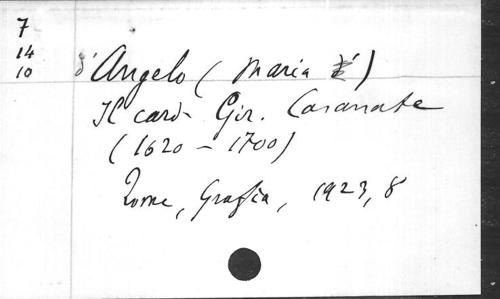 7
14
10
d'Angelo (Maria d')
Il card. Gir. Casanate
(1620 - 1700)
Rome, Grafia, 1923, 8